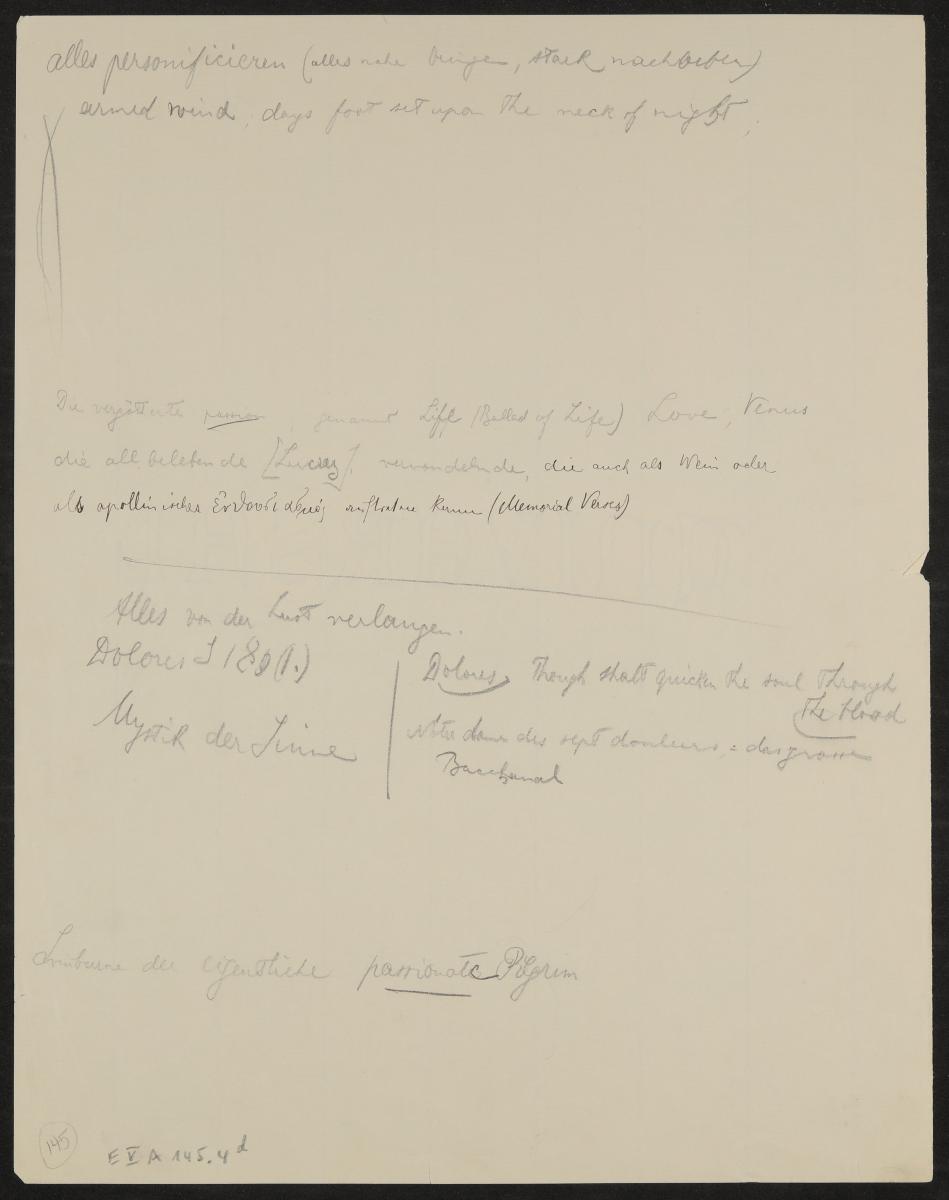 alles personificieren (alles nahe bringen, stark nachbeben)
armed wind, days foot set upon the neck of night,
Die vergötterte passion, genannt Life (Ballad of Life) Love, Venus
die all belebende [Lucrez], verwandelnde, die auch als Wein oder
als apollinischer Ενθουσιασμός auftreten kann (Memorial Verses)
Alles von der Lust verlangen.
Dolores I 180 (1.)
Mystik der Sinne
Dolores, Though shalt quicken the soul through
the blood
Notre dame des sept douleurs, = das grosse
Bacchanal
der eigentliche passionate Pilgrim
145
E V A 145.4 d